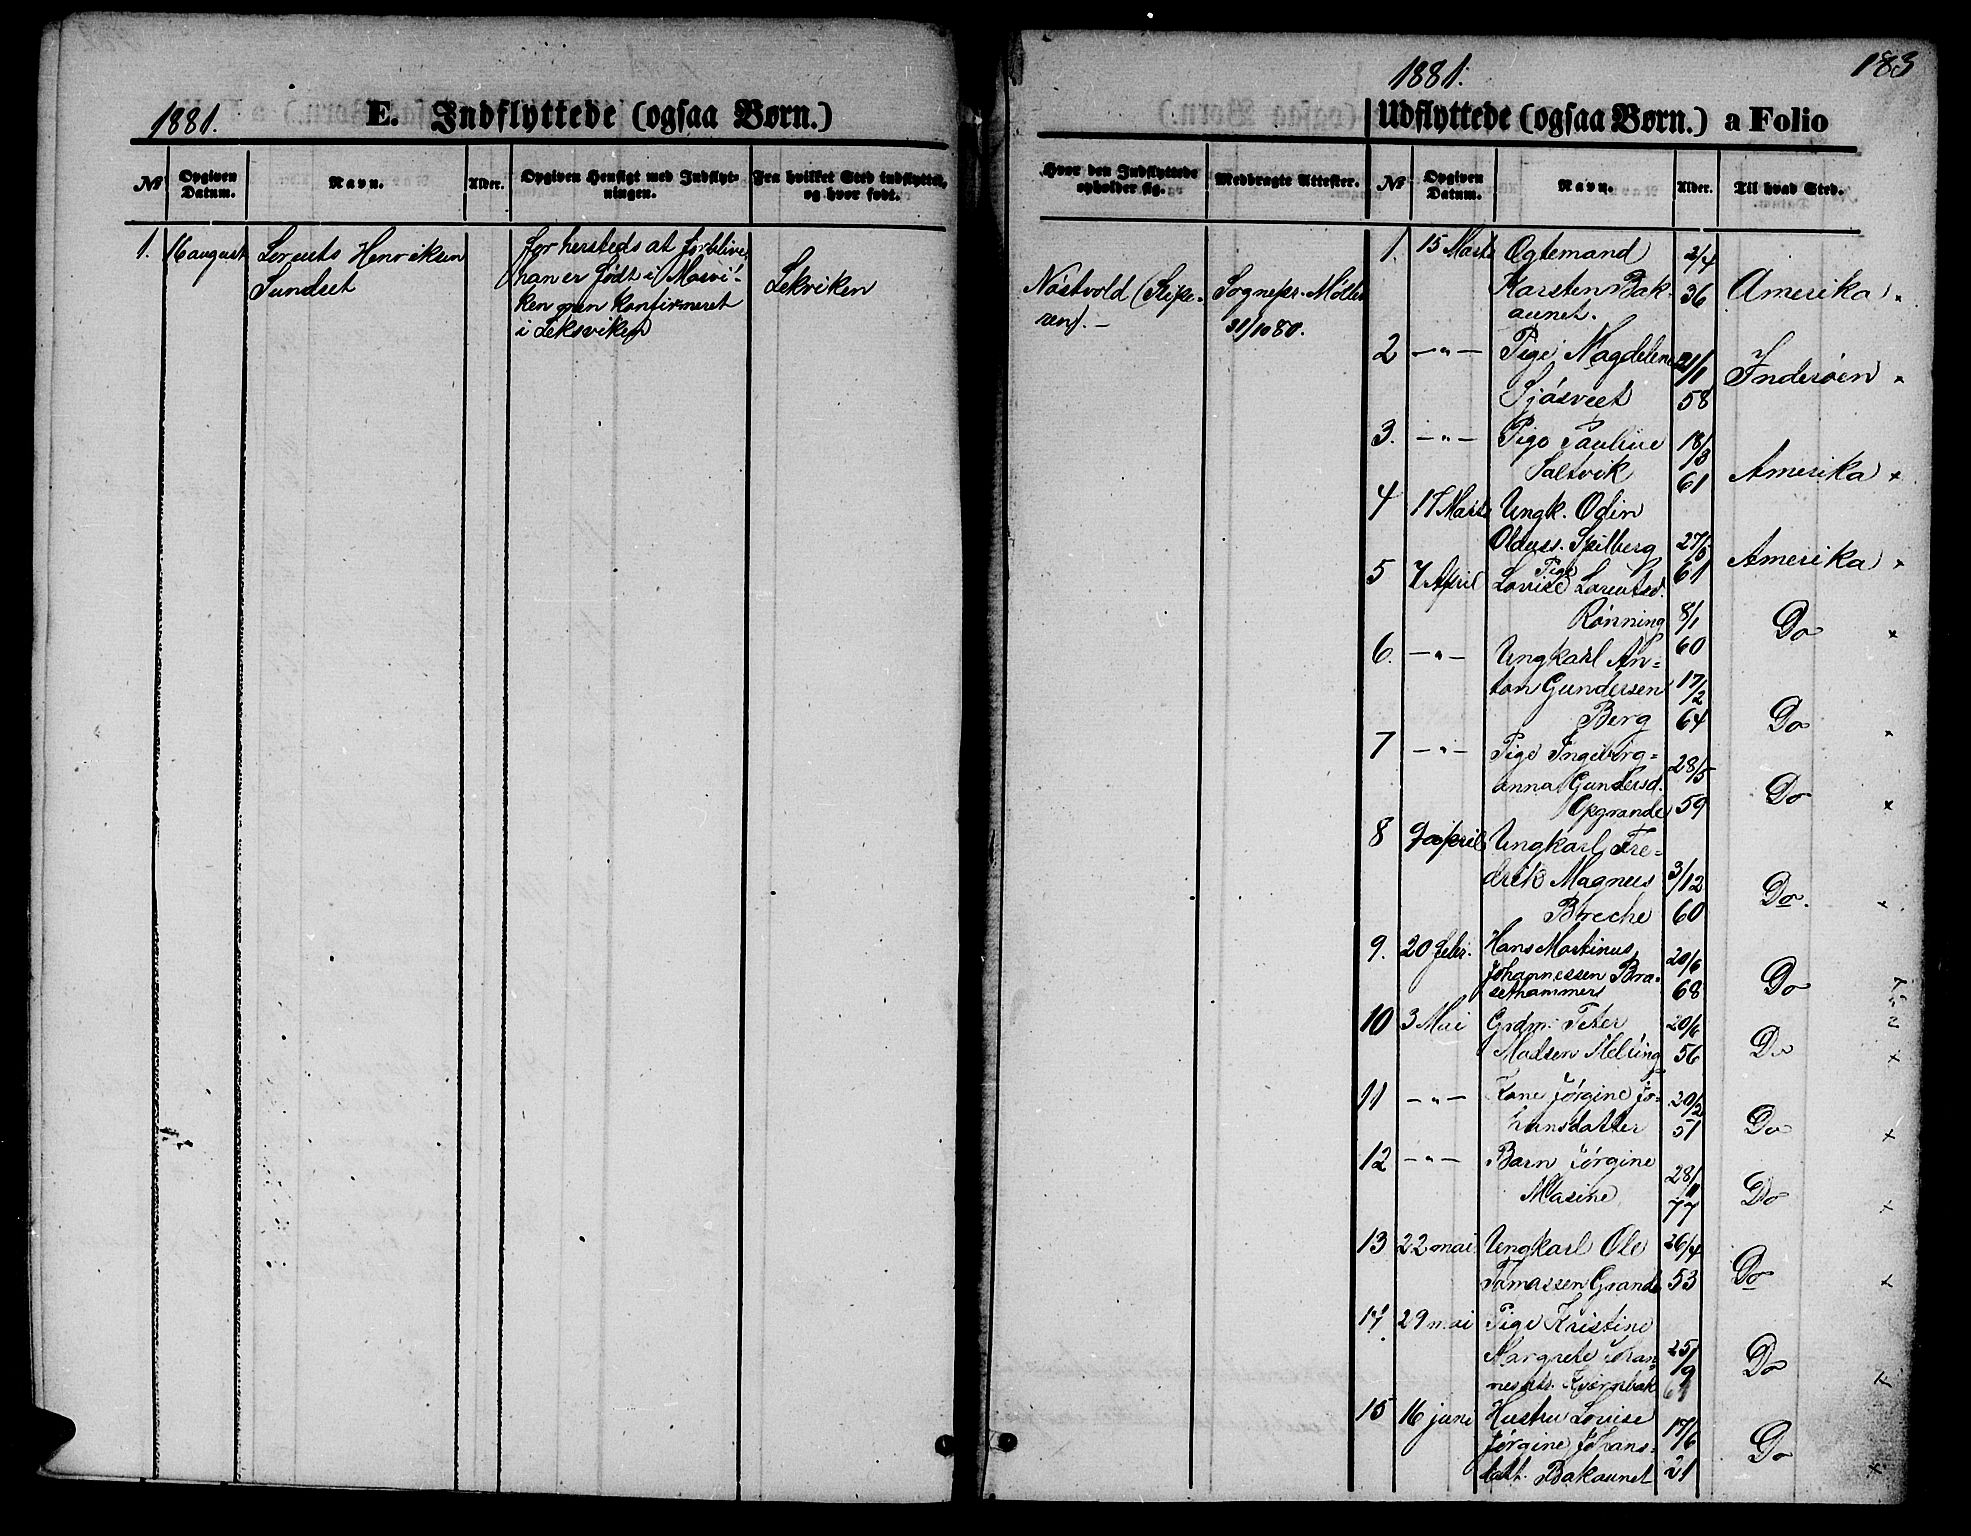 1881.
E. Indflyttede (ogsaa Børn.)
No
Opgiven Datum.
Navn.
Alder.
Opgiven Hensigt med Indflyt-
ningen.
Fra hvilket Sted indflyttet,
og hvor født.
1. 16 august Lorents Henriksen
Sundset
for hersteds at forblive,
han er født i Mosvi-
ken men konfirmeret
i Leksviken
Lekviken
183
1881.
Udflyttede (ogsaa Børn.) a Folio
Hvor den Indflyttede
opholder sig.
Medbragte Attester.
No
Opgiven
Datum.
Navn.
Alder.
Til hvad Sted.
Nøstvold
Sognepr. Møller
31/10 80.
1. 15 Marts Ogtemand 2/4
Karsten Bak- 36 Amerika
aunet.
2 -"- Pige Magdelene 21/1
Sjøsveet 58 Inderøen
3. -"- Pige Pauline 18/3
Saltvik 61 Amerika
4 17 Marts Ungk. Odin
Olduss. Spilberg 27/5 61 Amerika
5 7 April Pige Lovise Lorentsd.
Rønning 8/1 60 Do
6. -"- Ungkarl An=
ton Gundersen 17/2
Berg 64 Do
7 -"- Pige Ingeborg=
anna Gundersd. 28/5
Opgrande 59 Do
8 9 april Ungkarl Fre=
drik Magnus 3/12
Breche 60 Do.
9. 20 febr. Hans Martinus
Johannessen Bra- 20/6
sethammers 68 Do
10 3 Mai Grdm. Peter 20/6
Madsen 56 Do
11 -"- Kone Jørgine Jo- 20/2
hansdatter 51 Do
12 -"- Barn Jørgine 28/11
Masine 77 Do
13 22 mai Ungkarl Ole 26/4
Tomassen Grande 53 Do
14 29 mai Pige Kristine
Margrete Johan- 25/9
nesdts. Kvernbak Do
15 16 juni Hustru Lovise 17/6
Jørgine Johans=
datt. Bakaunet 21 Do